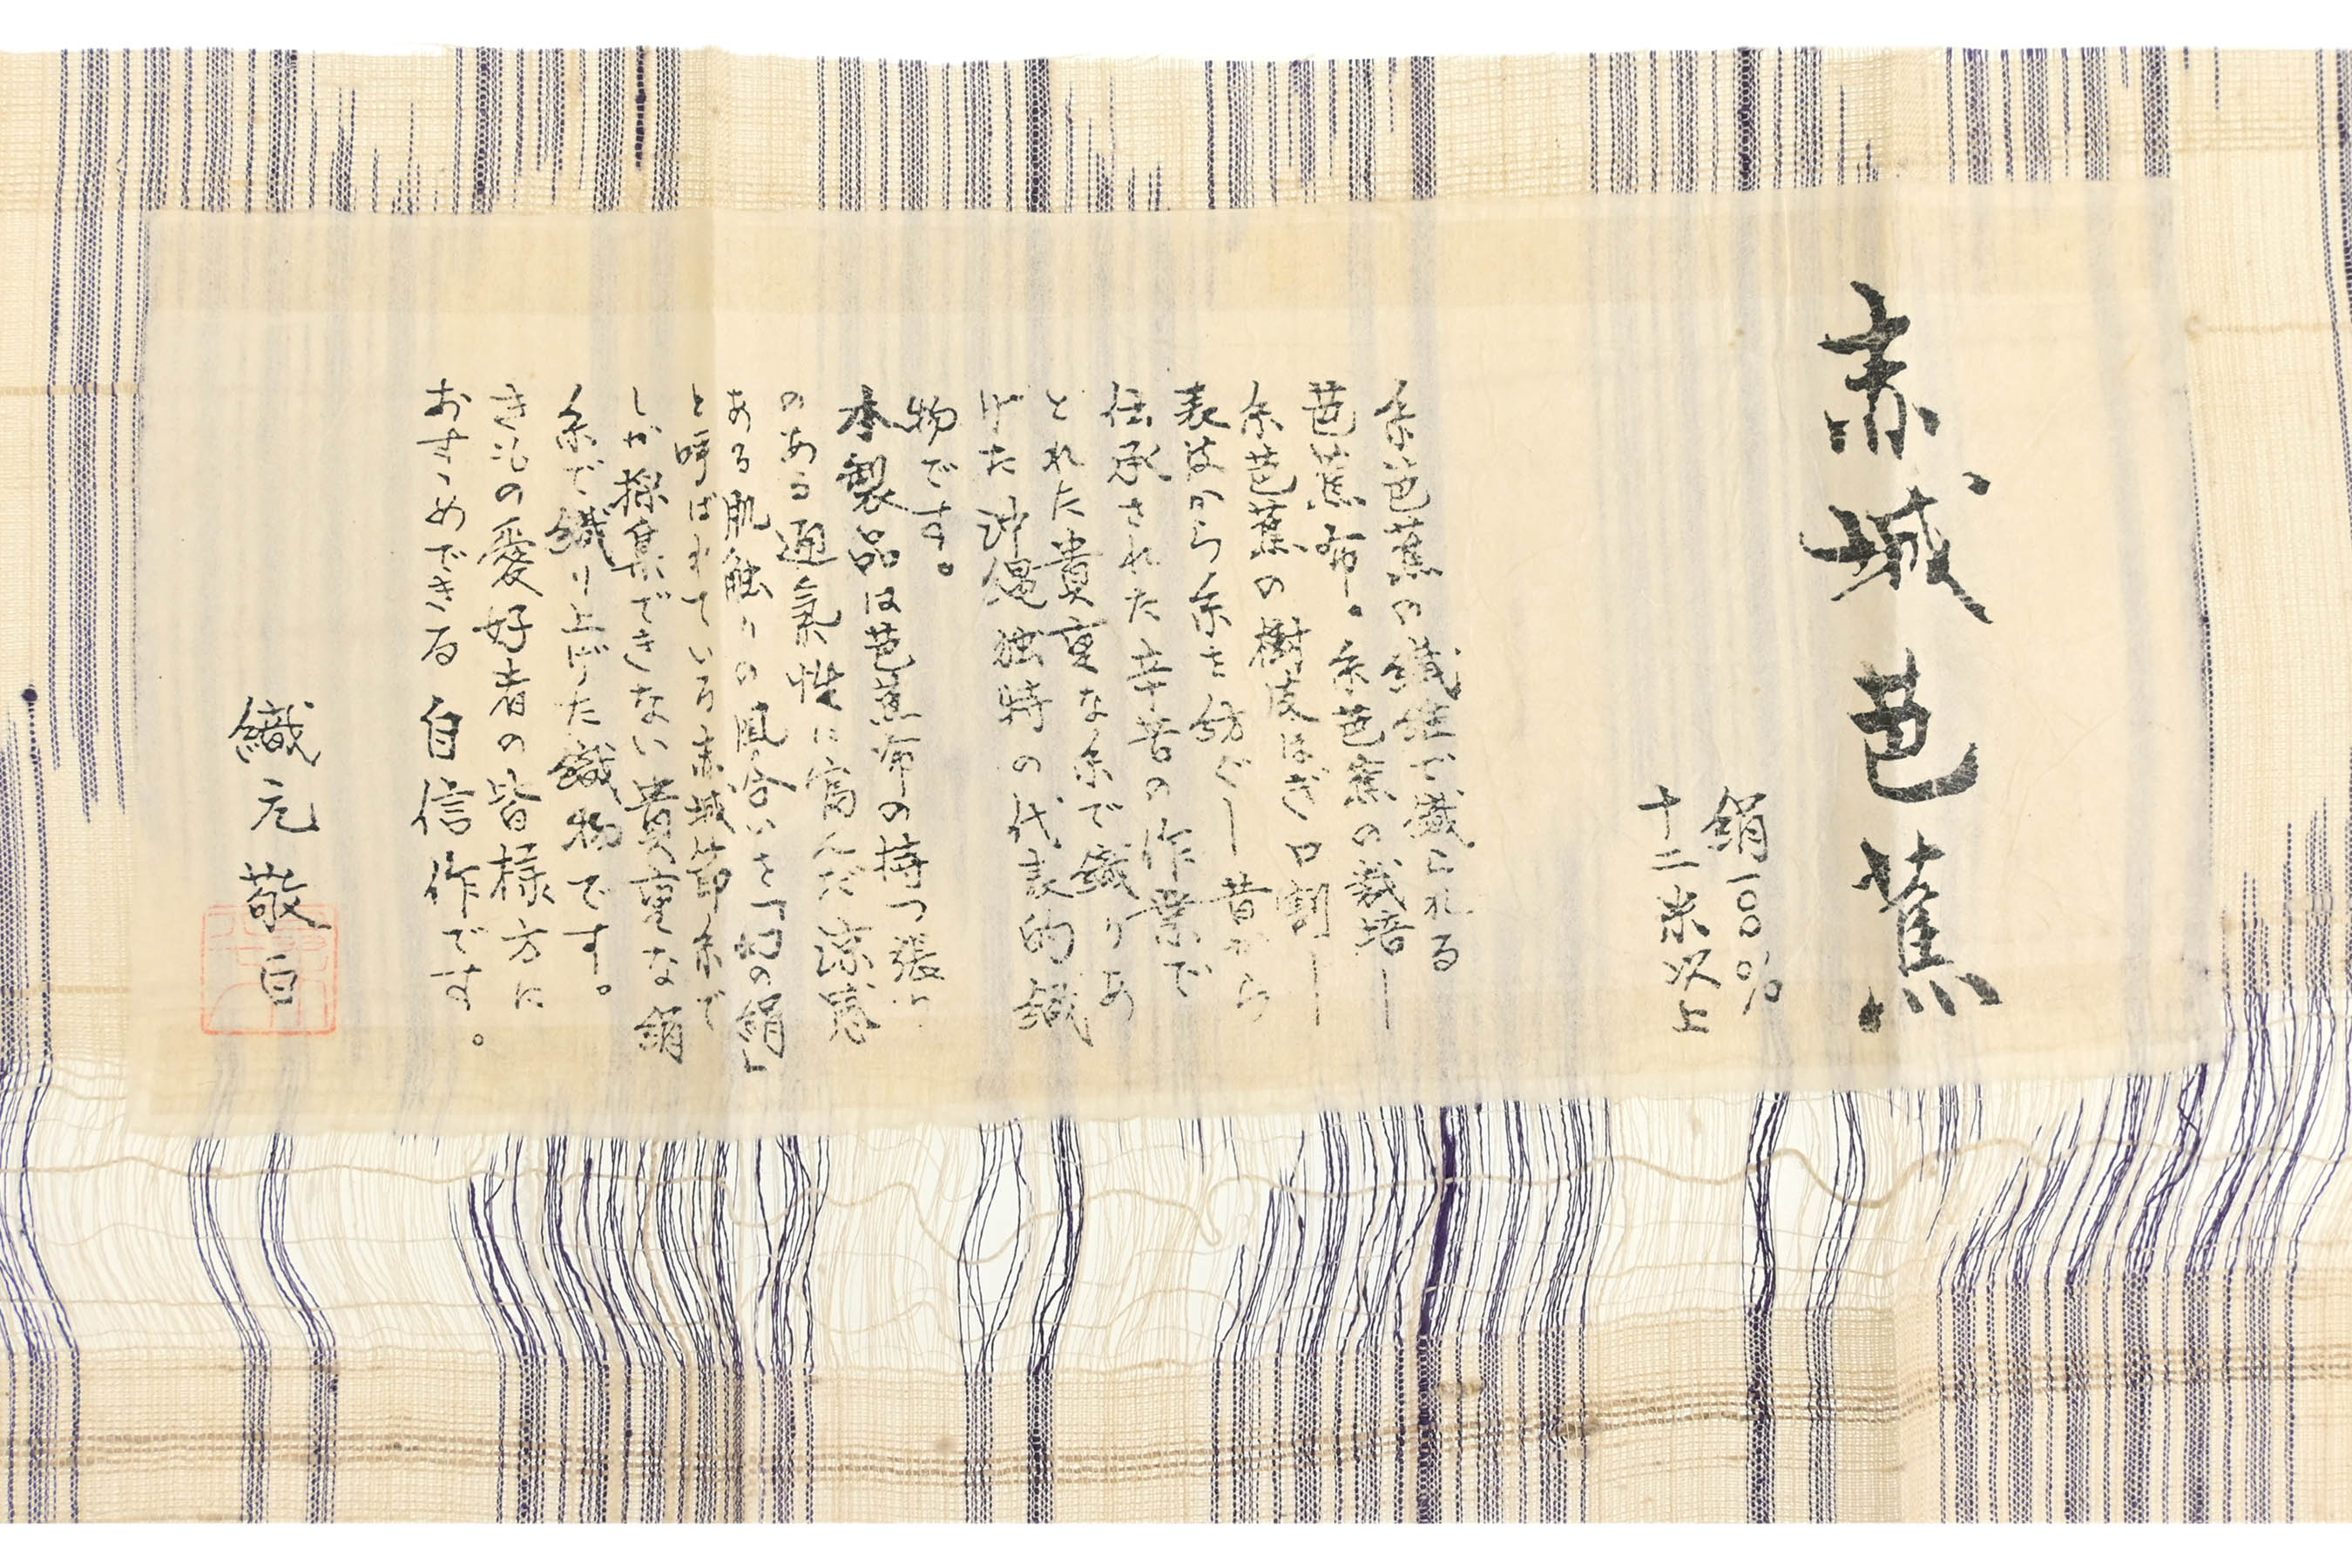 赤城芭蕉
絹一〇〇%
十二糸以上
糸芭蕉の繊維で織られる
芭蕉布。糸芭蕉の栽培—
糸芭蕉の樹皮はぎ口割—
表皮から糸を紡ぐ—昔から
伝承された辛苦の作業で
とれた貴重な糸で織りあ
げた沖縄独特の代表的織
物です。
本製品は芭蕉布の持つ張り
のある通氣性に富んだ涼感
ある肌触りの風合いを「幻の絹」
と呼ばれている赤城節糸で
しか採集できない貴重な絹
糸で織り上げた織物です。
きもの愛好者の皆様方に
おすゝめできる自信作です。
織元敬白